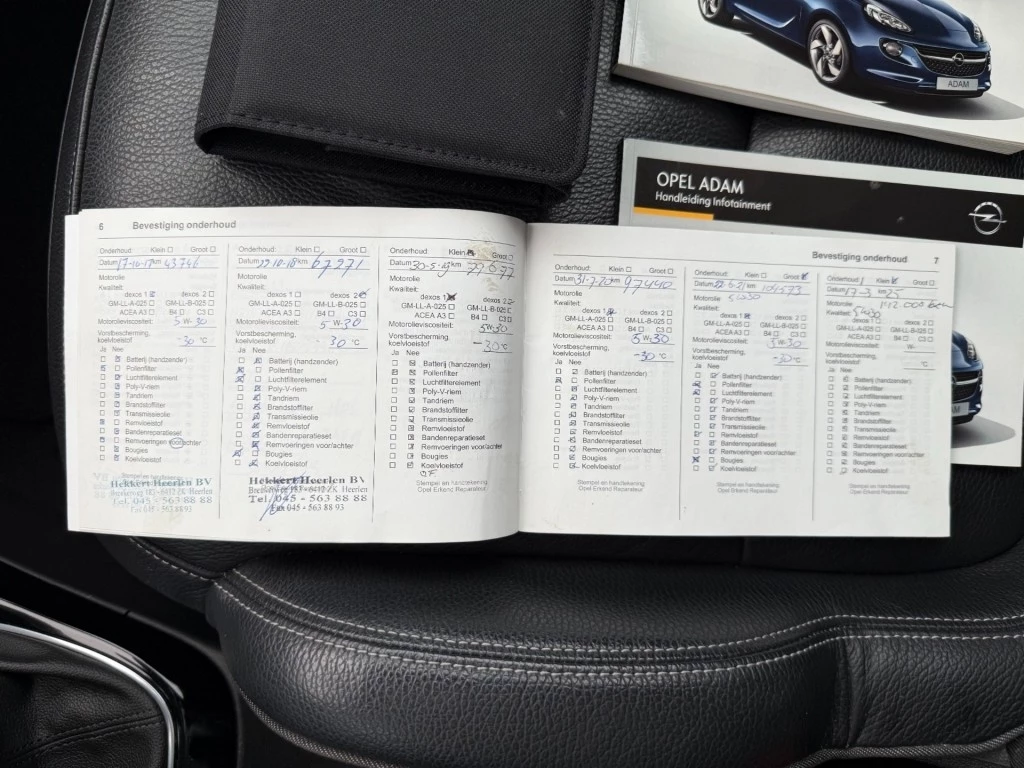 ADAM
OPEL ADAM
Handleiding Infotainment
6 Bevestiging onderhoud
Onderhoud: Klein Groot
Datum 17-10-17 km 43746
Motorolie
Kwaliteit:
dexos 1 dexos 2
GM-LL-A-025 GM-LL-B-025
ACEA A3 B4 C3
Motorolieviscositeit: 5W-30
Vorstbescherming,
koelvloeistof -30 °C
Ja Nee
Batterij (handzender)
Pollenfilter
Luchtfilterelement
Poly-V-riem
Tandriem
Brandstoffilter
Transmissieolie
Remvloeistof
Bandenreparatieset
Remvoeringen voor/achter
Bougies
Koelvloeistof
Hekkert Heerlen BV
Tel. 045 - 563 88 88
Fax 045 - 563 88 93
Onderhoud: Klein Groot
Datum 22-10-18 km 67271
Motorolie
Kwaliteit:
dexos 1 dexos 2
GM-LL-A-025 GM-LL-B-025
ACEA A3 B4 C3
Motorolieviscositeit: 5W30
Vorstbescherming,
koelvloeistof -30 °C
Ja Nee
Batterij (handzender)
Pollenfilter
Luchtfilterelement
Poly-V-riem
Tandriem
Brandstoffilter
Transmissieolie
Remvloeistof
Bandenreparatieset
Remvoeringen voor/achter
Bougies
Koelvloeistof
Hekkert Heerlen BV
Tel. 045 - 563 88 88
Fax 045 - 563 88 93
Onderhoud: Klein Groot
Datum km
Motorolie
Kwaliteit:
dexos 1 dexos 2
GM-LL-A-025 GM-LL-B-025
ACEA A3 B4 C3
Motorolieviscositeit: 5W30
Vorstbescherming,
koelvloeistof -30 °C
Ja Nee
Batterij (handzender)
Pollenfilter
Luchtfilterelement
Poly-V-riem
Tandriem
Brandstoffilter
Transmissieolie
Remvloeistof
Bandenreparatieset
Remvoeringen voor/achter
Bougies
Koelvloeistof
Stempel en handtekening
Opel Erkend Reparateur
Bevestiging onderhoud 7
Onderhoud: Klein Groot
Datum 31-7-20 km 97440
Motorolie
Kwaliteit:
dexos 1 dexos 2
GM-LL-A-025 GM-LL-B-025
ACEA A3 B4 C3
Motorolieviscositeit: 5W30
Vorstbescherming,
koelvloeistof -30 °C
Ja Nee
Batterij (handzender)
Pollenfilter
Luchtfilterelement
Poly-V-riem
Tandriem
Brandstoffilter
Transmissieolie
Remvloeistof
Bandenreparatieset
Remvoeringen voor/achter
Bougies
Koelvloeistof
Stempel en handtekening
Opel Erkend Reparateur
Onderhoud: Klein Groot
Datum km 104573
Motorolie 5W30
Kwaliteit:
dexos 1 dexos 2
GM-LL-A-025 GM-LL-B-025
ACEA A3 B4 C3
Motorolieviscositeit: 5W30
Vorstbescherming,
koelvloeistof -30 °C
Ja Nee
Batterij (handzender)
Pollenfilter
Luchtfilterelement
Poly-V-riem
Tandriem
Brandstoffilter
Transmissieolie
Remvloeistof
Bandenreparatieset
Remvoeringen voor/achter
Bougies
Koelvloeistof
Stempel en handtekening
Opel Erkend Reparateur
Onderhoud: Klein Groot
Datum km
Motorolie
Kwaliteit: 5W30
dexos 1 dexos 2
GM-LL-A-025 GM-LL-B-025
ACEA A3 B4 C3
Motorolieviscositeit: W-
Vorstbescherming,
koelvloeistof °C
Ja Nee
Batterij (handzender)
Pollenfilter
Luchtfilterelement
Poly-V-riem
Tandriem
Brandstoffilter
Transmissieolie
Remvloeistof
Bandenreparatieset
Remvoeringen voor/achter
Bougies
Koelvloeistof
Stempel en handtekening
Opel Erkend Reparateur